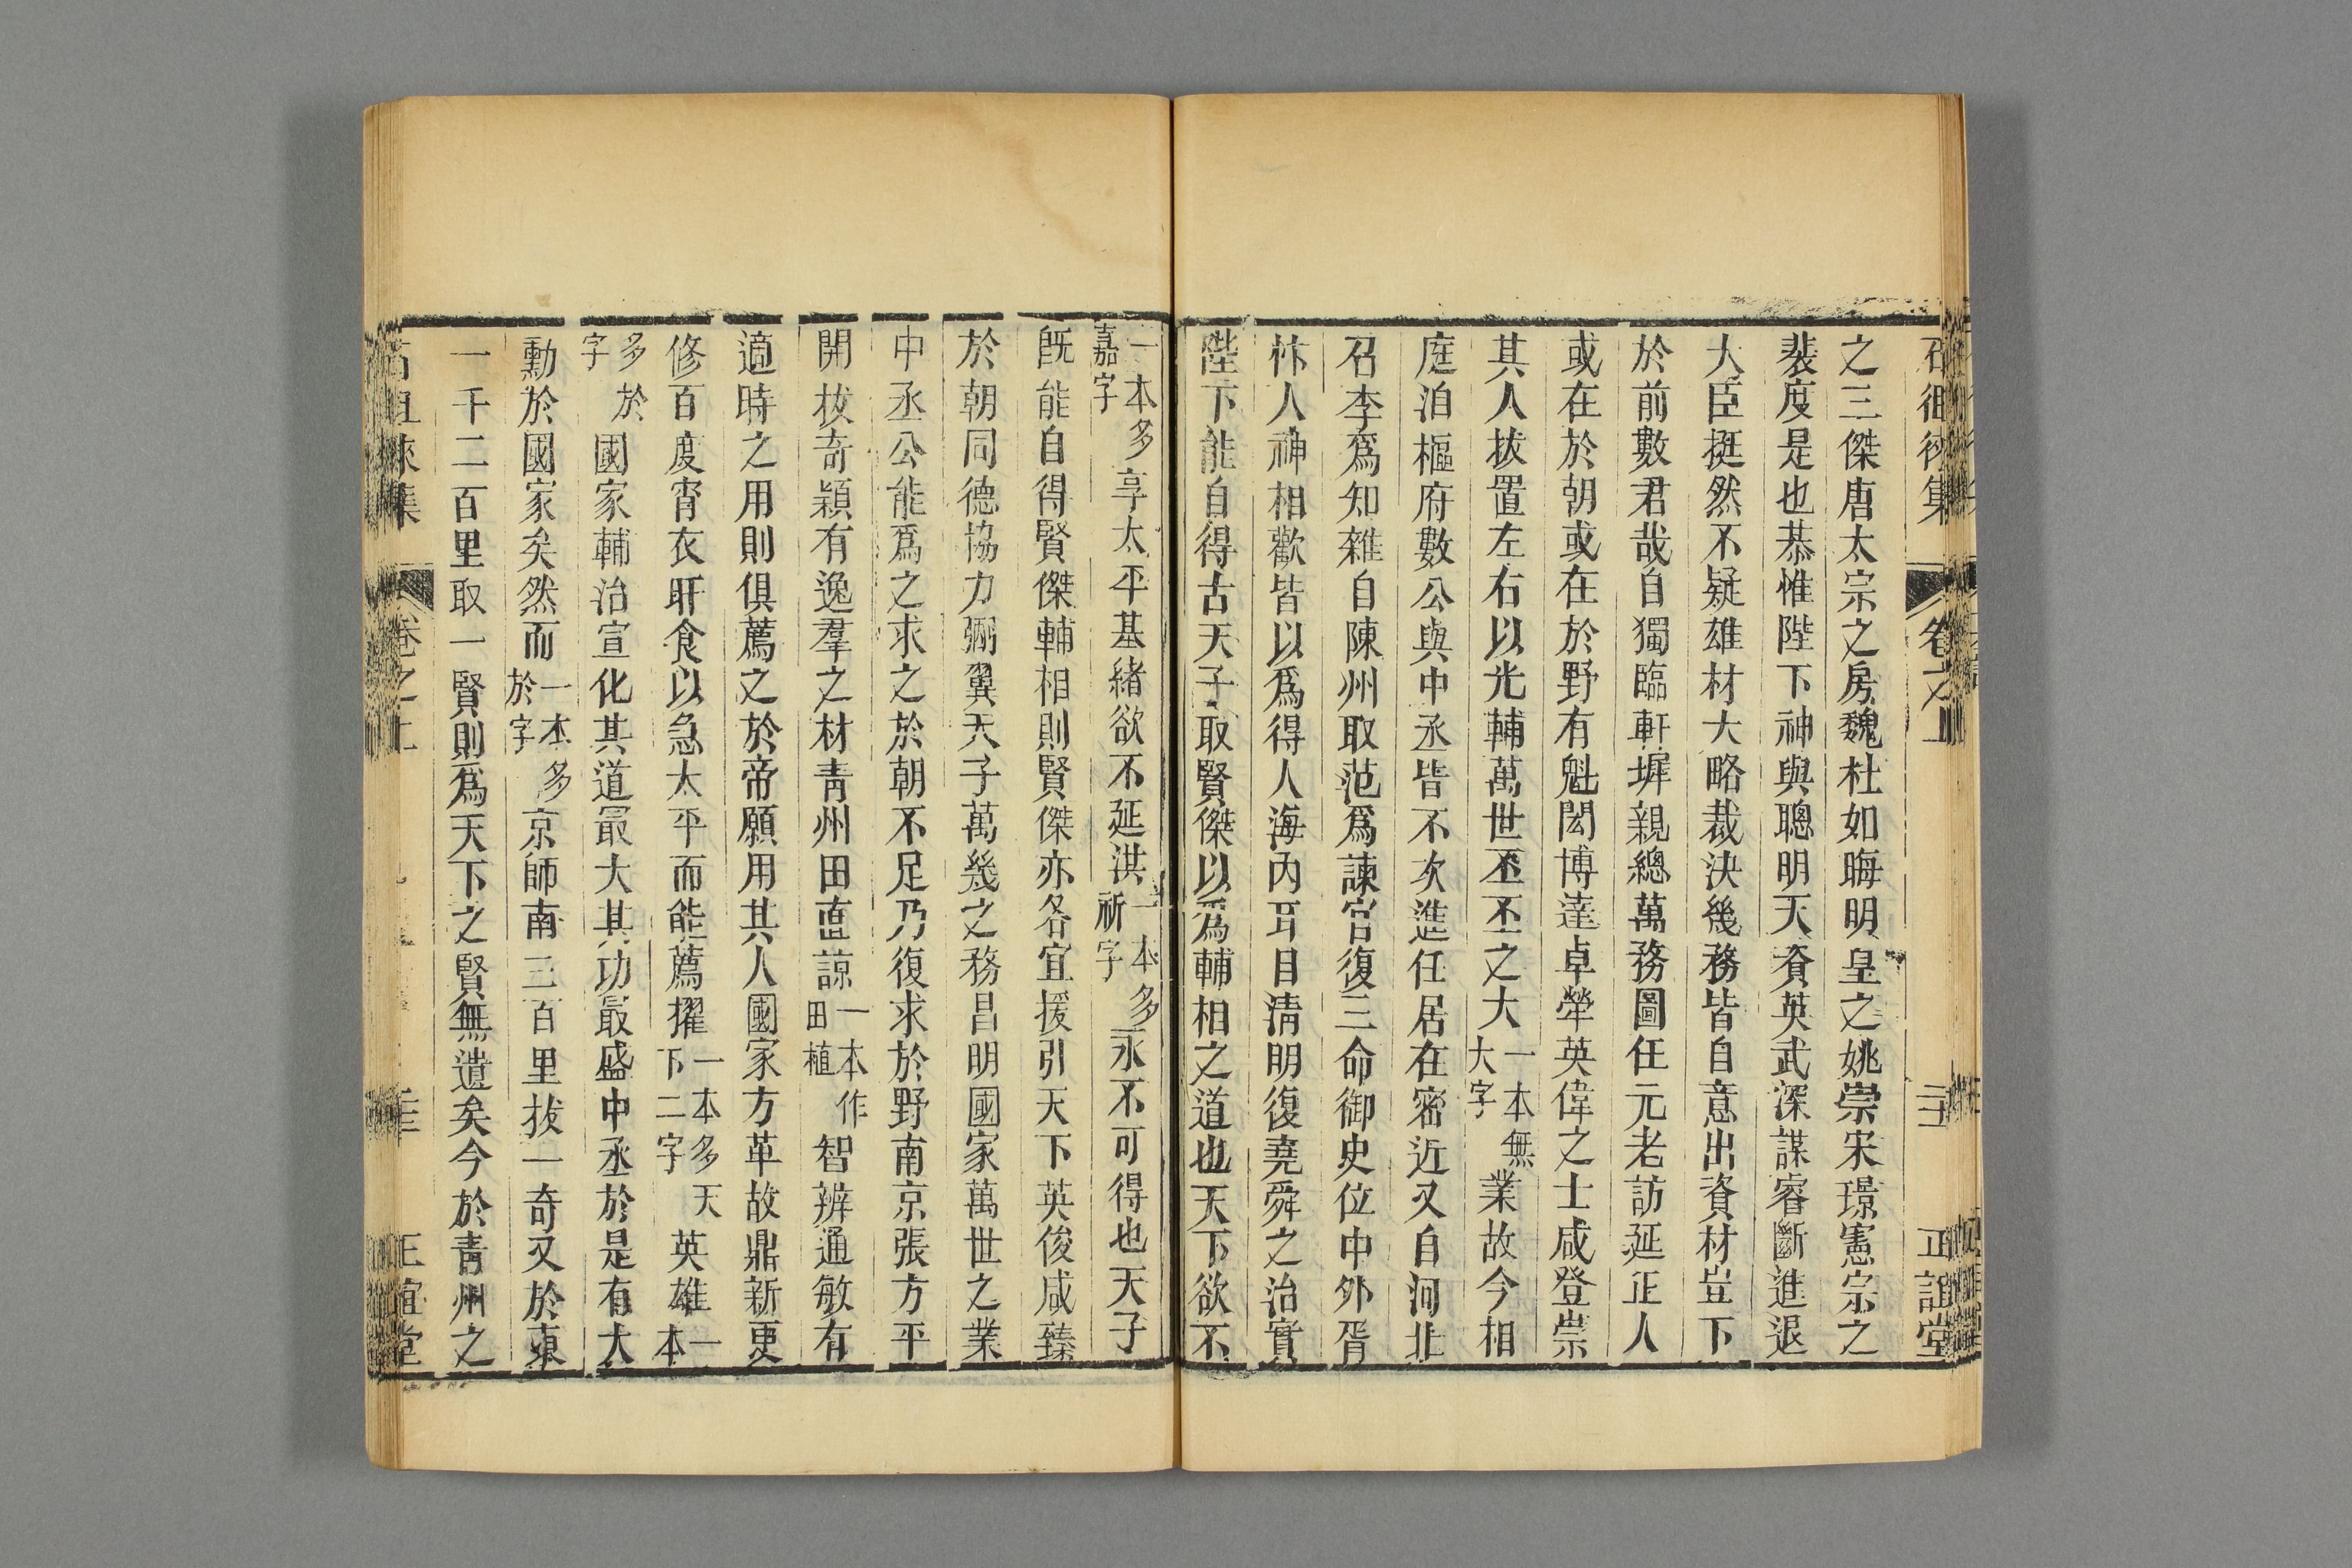 石徂徠集 卷之上 正誼堂
之三傑唐太宗之房魏杜如晦明皇之姚崇宋璟憲宗之
裴度是也恭惟陛下神與聰明天資英武深謀睿斷進退
大臣挺然不疑雄材大略裁決幾務皆自意出資材豈下
於前數君哉自獨臨軒墀親總萬務圖任元老訪延正人
或在於朝或在於野有魁閎博達卓犖英偉之士咸登崇
其人拔置左右以光輔萬世丕丕之大一本無大字業故今相
庭洎樞府數公與中丞皆不次進任居在密近又自河北
召李爲知雜自陳州取范爲諫官復三命御史位中外胥
忭人神相歡皆以爲得人海內耳目淸明復堯舜之治實
陛下能自得古天子取賢傑以爲輔相之道也天下欲不
一本多嘉字享太平基緒欲不延洪一本多祈字永不可得也天子
旣能自得賢傑輔相則賢傑亦各宜援引天下英俊咸臻
於朝同德協力弼翼天子萬幾之務昌明國家萬世之業
中丞公能爲之求之於朝不足乃復求於野南京張方平
開拔奇穎有逸羣之材靑州田直諒一本作田植智辨通敏有
適時之用則俱薦之於帝願用其人國家方革故鼎新更
修百度宵衣旰食以急太平而能薦擢一本多天下二字英雄一本
多於字國家輔治宣化其道最大其功最盛中丞於是有大
勳於國家矣然而一本多於字京師南三百里拔一奇又於東
一千二百里取一賢則爲天下之賢無遺矣今於靑州之
石徂徠集 卷之上 正誼堂